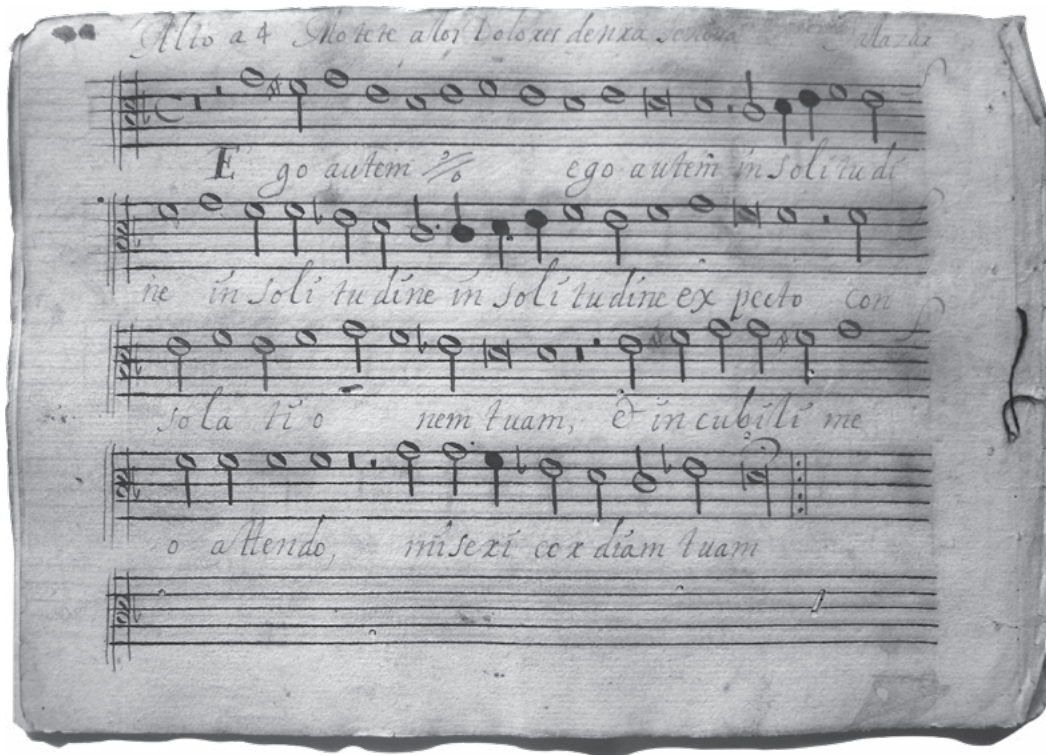 Alto a 4 Motete a los Dolores de nra Senora Salazar
E go autem ego autem in soli tu di
ne in soli tu dine in soli tu dine ex pecto con
sola ti o nem tuam, & in cubili me
o attendo, miseri cor diam tuam